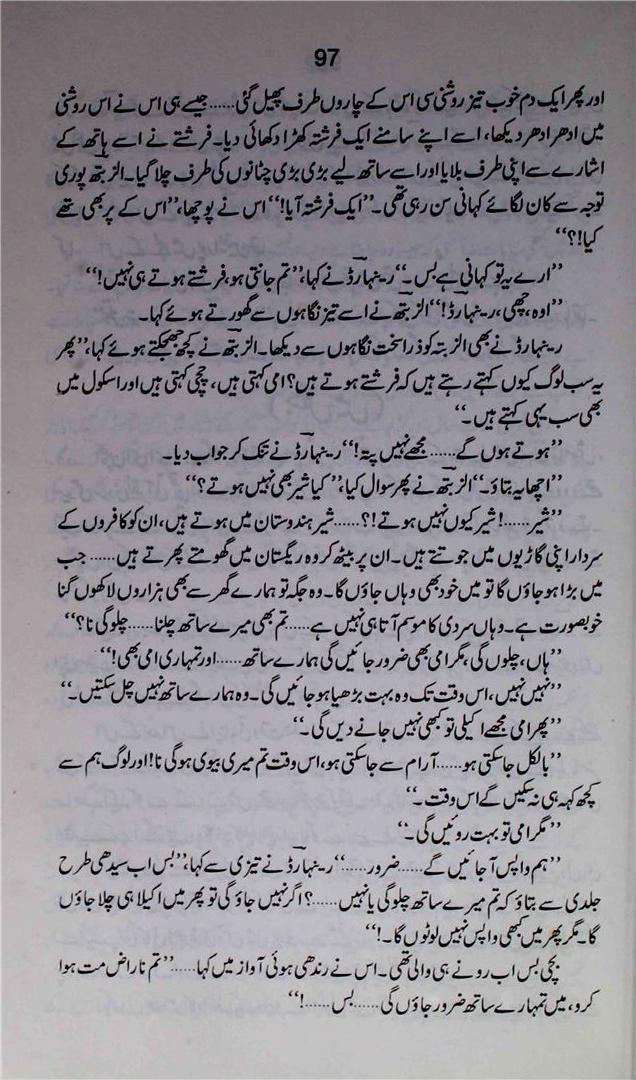 97
اور پھر ایک دم خوب تیز روشنی سی اس کے چاروں طرف پھیل گئی...... جیسے ہی اس نے اس روشنی
میں ادھر ادھر دیکھا، اسے اپنے سامنے ایک فرشتہ کھڑا دکھائی دیا۔ فرشتے نے اسے ہاتھ کے
اشارے سے اپنی طرف بلایا اور اسے ساتھ لیے بڑی بڑی چٹانوں کی طرف چلا گیا۔ الزبتھ پوری
توجہ سے کان لگائے کہانی سن رہی تھی۔ ”ایک فرشتہ آیا!“ اس نے پوچھا، ”اس کے پر بھی تھے
کیا!؟“
”ارے یہ تو کہانی ہے بس۔“ رینہارڈ نے کہا، ”تم جانتی ہو، فرشتے ہوتے ہی نہیں!“
”اوہ، چھی، رینہارڈ!“ الزبتھ نے اسے تیز نگاہوں سے گھورتے ہوئے کہا۔
رینہارڈ نے بھی الزبتہ کو ذرا سخت نگاہوں سے دیکھا۔ الزبتھ نے کچھ جھجکتے ہوئے کہا، ”پھر
یہ سب لوگ کیوں کہتے رہتے ہیں کہ فرشتے ہوتے ہیں؟ امی کہتی ہیں، چچی کہتی ہیں اور اسکول میں
بھی سب یہی کہتے ہیں۔“
”ہوتے ہوں گے...... مجھے نہیں پتہ!“ رینہارڈ نے تنک کر جواب دیا۔
”اچھا یہ بتاؤ۔“ الزبتھ نے پھر سوال کیا، ”کیا شیر بھی نہیں ہوتے؟“
”شیر......! شیر کیوں نہیں ہوتے!؟...... شیر ہندوستان میں ہوتے ہیں، ان کو کافروں کے
سردار اپنی گاڑیوں میں جوتتے ہیں۔ ان پر بیٹھ کر وہ ریگستان میں گھومتے پھرتے ہیں...... جب
میں بڑا ہو جاؤں گا تو میں خود بھی وہاں جاؤں گا۔ وہ جگہ تو ہمارے گھر سے بھی ہزاروں لاکھوں گنا
خوبصورت ہے۔ وہاں سردی کا موسم آتا ہی نہیں ہے...... تم بھی میرے ساتھ چلنا...... چلو گی نا؟“
”ہاں، چلوں گی، مگر امی بھی ضرور جائیں گی ہمارے ساتھ...... اور تمہاری امی بھی!“
”نہیں نہیں، اس وقت تک وہ بہت بڑھیا ہو جائیں گی۔ وہ ہمارے ساتھ نہیں چل سکتیں۔“
”پھر امی مجھے اکیلی تو کبھی نہیں جانے دیں گی۔“
”بالکل جا سکتی ہو...... آرام سے جا سکتی ہو، اس وقت تم میری بیوی ہو گی نا! اور لوگ ہم سے
کچھ کہہ ہی نہ سکیں گے اس وقت۔“
”مگر امی تو بہت روئیں گی۔“
”ہم واپس آ جائیں گے...... ضرور......“ رینہارڈ نے تیزی سے کہا، ”بس اب سیدھی طرح
جلدی سے بتاؤ کہ تم میرے ساتھ چلو گی یا نہیں......؟ اگر نہیں جاؤ گی تو پھر میں اکیلا ہی چلا جاؤں
گا۔ مگر پھر میں کبھی واپس نہیں لوٹوں گا۔!“
بچی بس اب رونے ہی والی تھی۔ اس نے رندھی ہوئی آواز میں کہا...... ”تم ناراض مت ہوا
کرو، میں تمہارے ساتھ ضرور جاؤں گی...... بس......!“